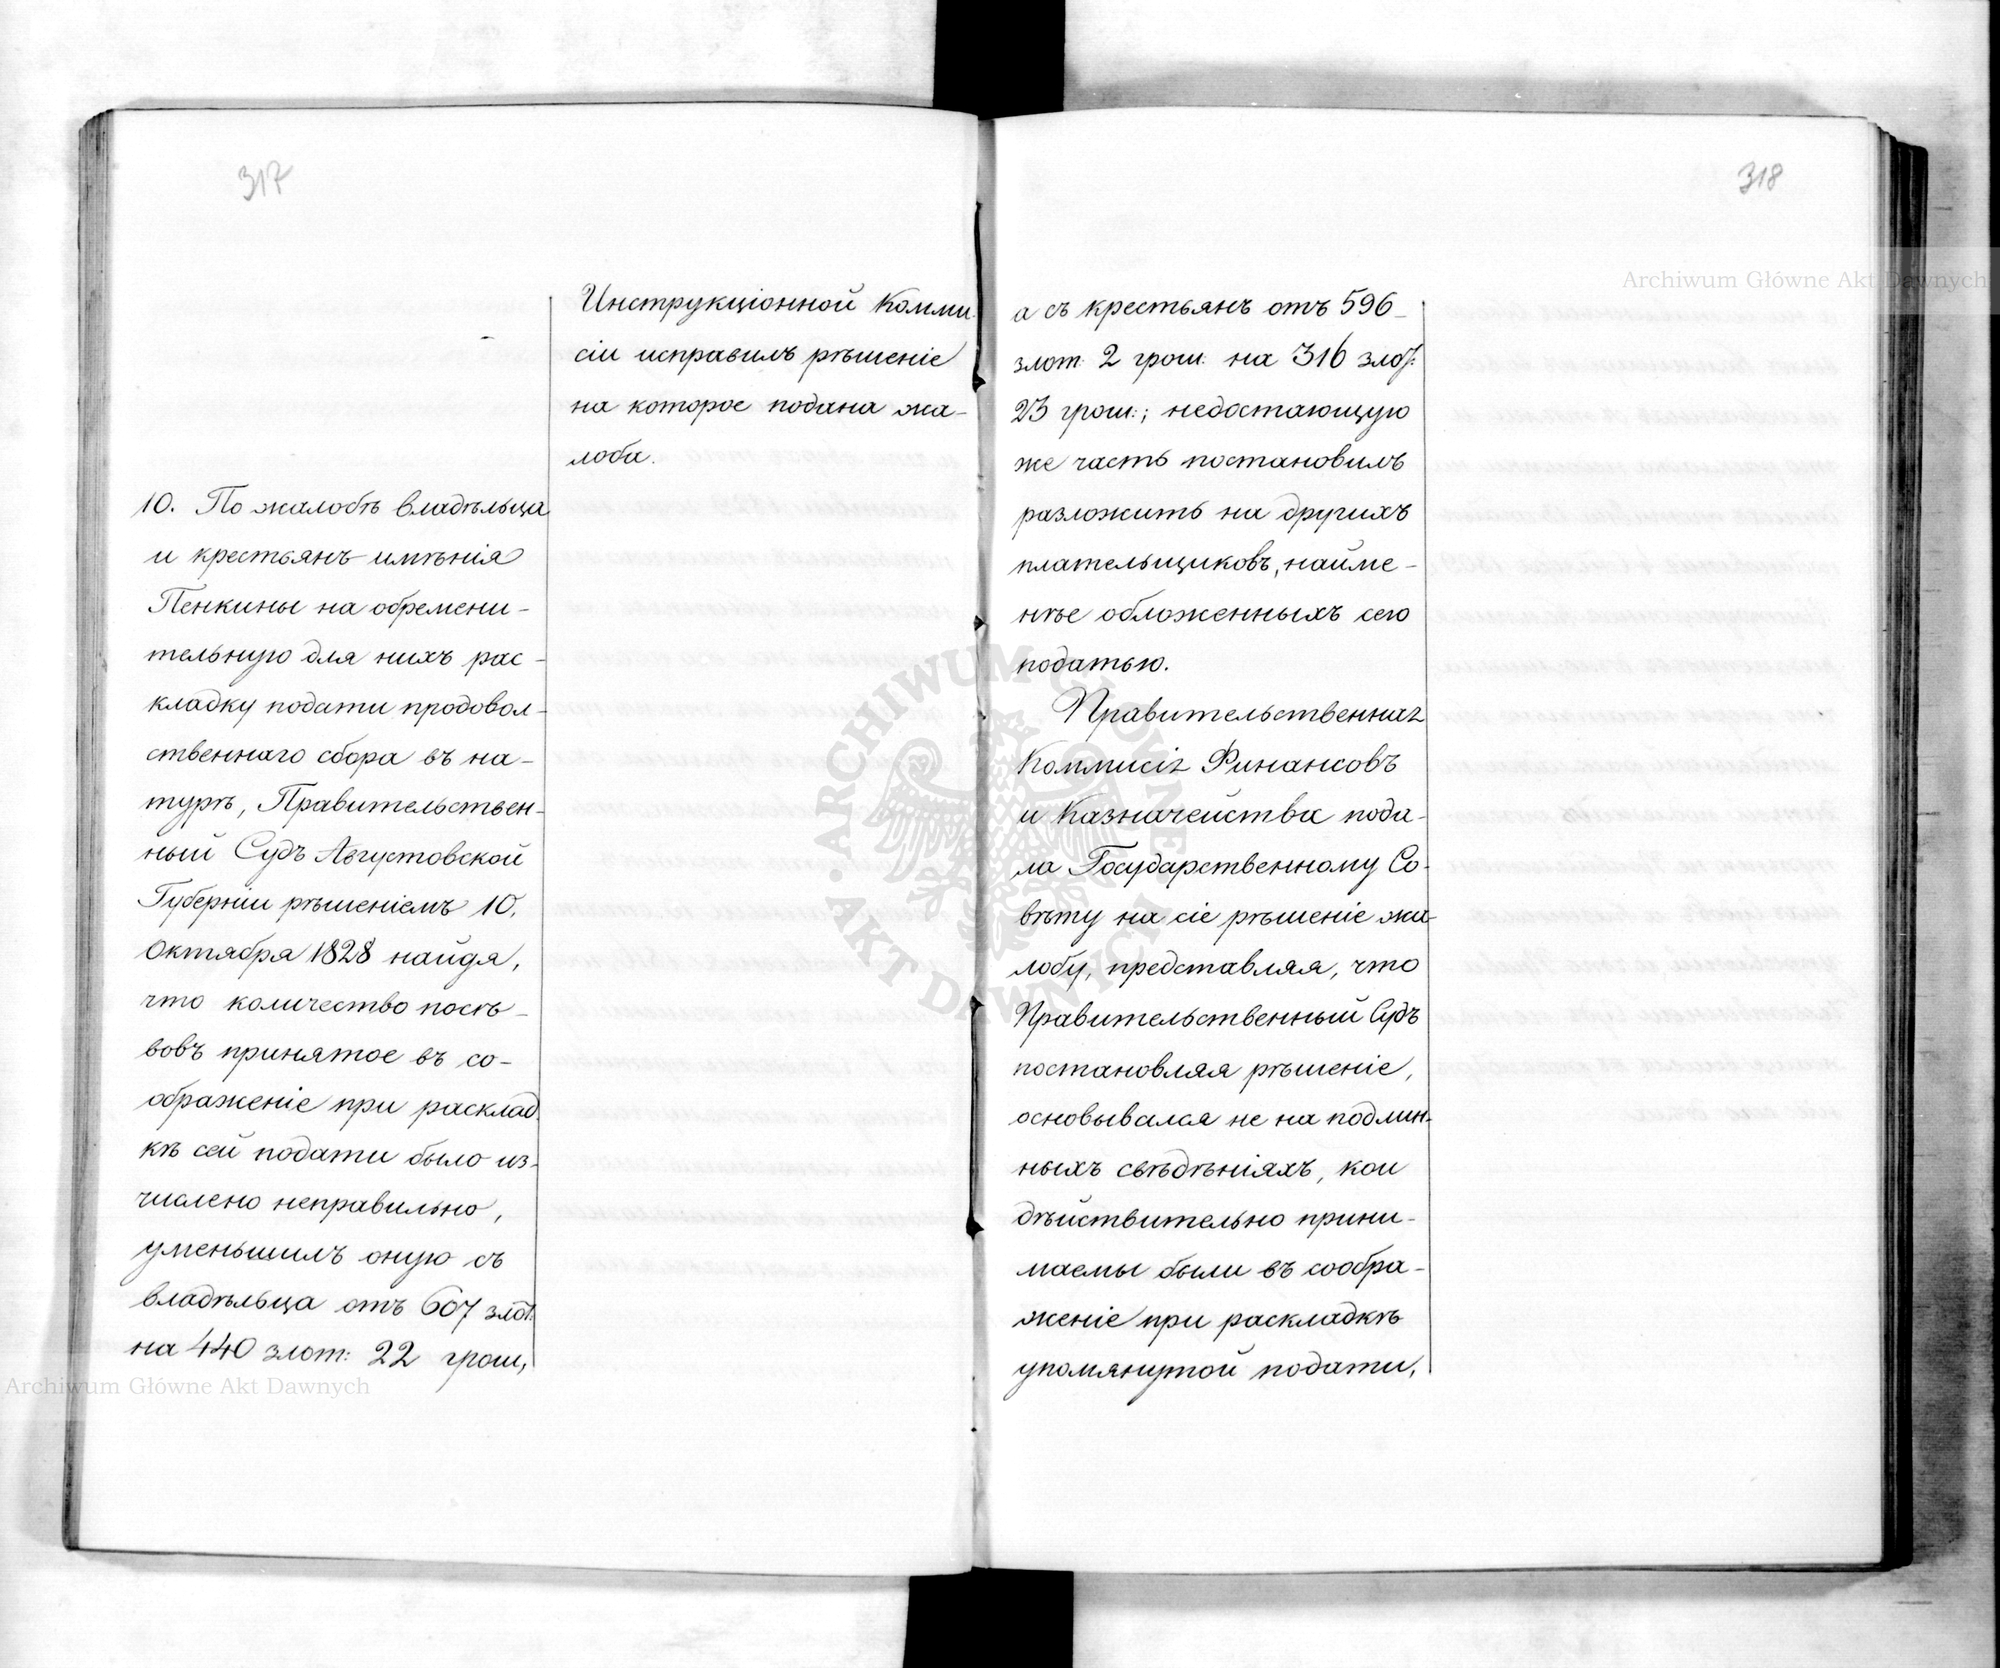 317
Инструкціонной Комми-
сіи исправилъ рѣшеніе
на которое подана жа-
лоба.
10. По жалобѣ владѣльца
и крестьянъ имѣнія
Пенкины на обремени-
тельную для нихъ рас-
кладку подати продовол-
ственнаго сбора въ на-
турѣ, Правительствен-
ный Судъ Августовской
Губерніи рѣшеніемъ 10.
Октября 1828 найдя,
что количество посѣ-
вовъ принятое въ со-
ображеніе при расклад-
кѣ сей подати было из-
числено неправильно,
уменьшилъ оную съ
владѣльца отъ 607 злот:
на 440 злот: 22 грош,
318
а съ крестьянъ отъ 596
злот: 2 грош: на 316 злот:
23 грош:; недостающую
же часть постановилъ
разложить на другихъ
плательщиковъ, найме-
нѣе обложенныхъ сею
податью.
Правительственная
Коммисія Финансовъ
и Казначейства пода-
ла Государственному Со-
вѣту на сіе рѣшеніе жа-
лобу, представляя, что
Правительственный Судъ
постановляя рѣшеніе,
основывался не на подлин-
ныхъ свѣдѣніяхъ, кои
дѣйствительно прини-
маемы были въ сообра-
женіе при раскладкѣ
упомянутой подати,
Archiwum Główne Akt Dawnych
Archiwum Główne Akt Dawnych
ARCHIWUM GŁÓWNE · AKT DAWNYCH ·